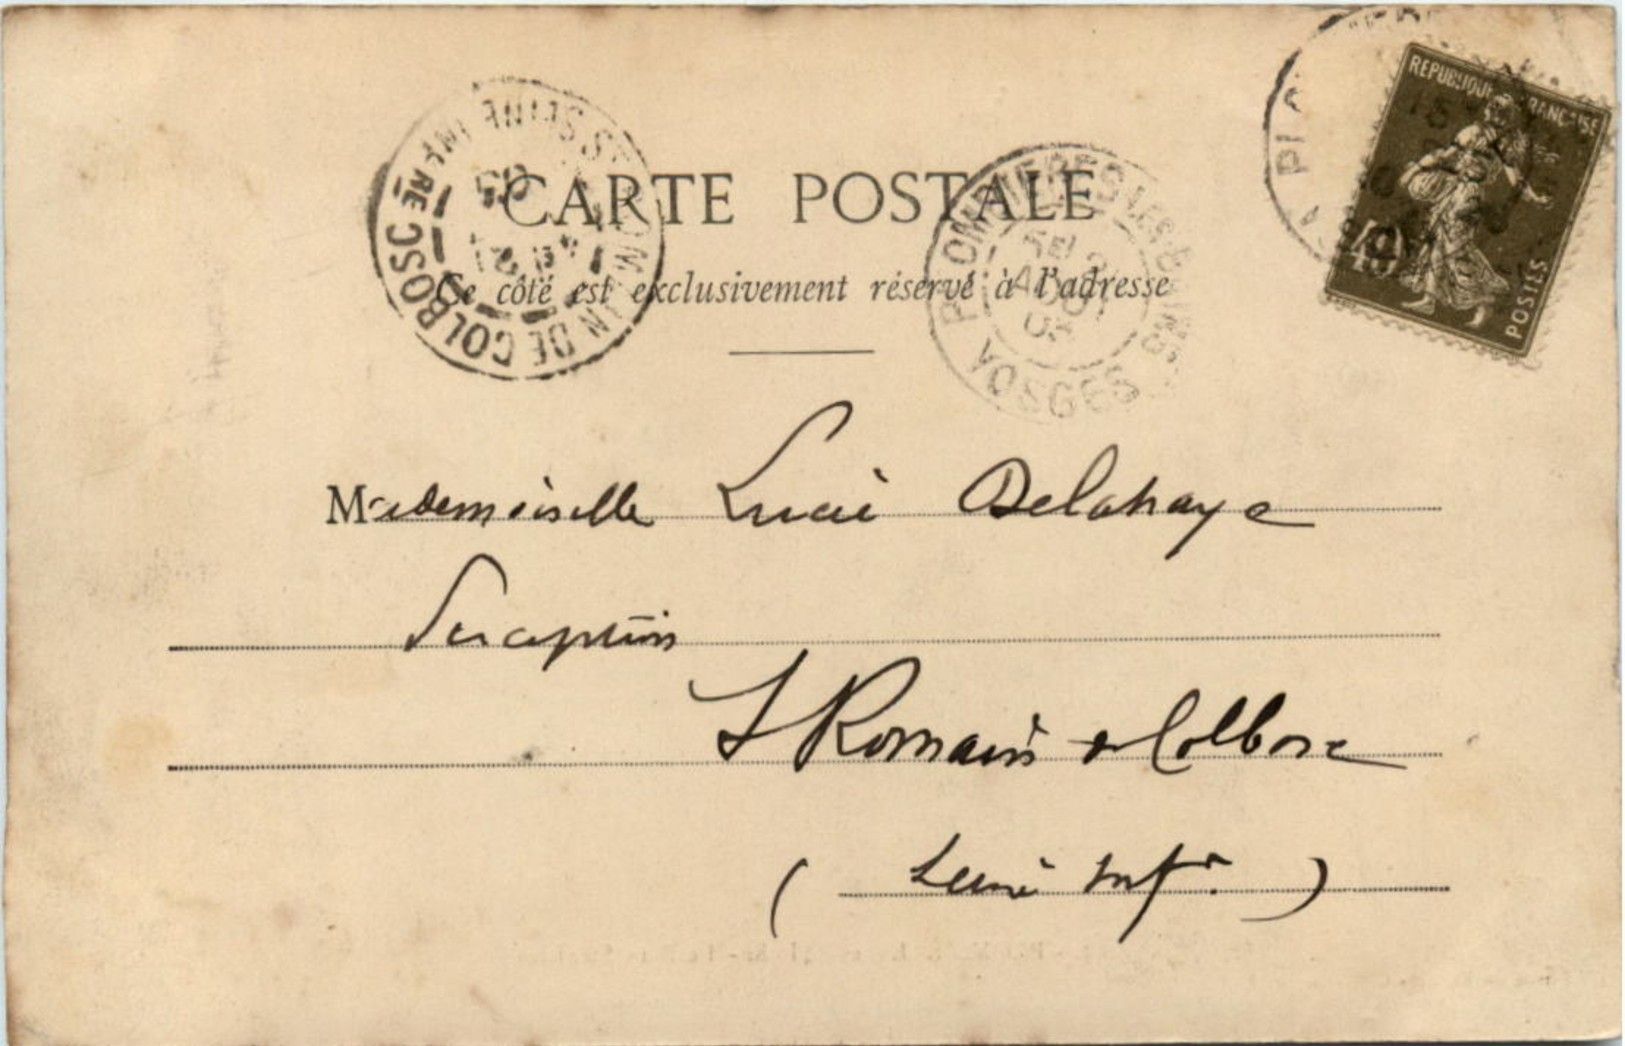 REPUBLIQUE FRANÇAISE
40
POSTES
ST ROMAIN DE COLBOSC
SEINE INFRE
PLOMBIERES LES BAINS
VOSGES
03
CARTE POSTALE
Ce côté est exclusivement réservé à l'adresse
Mademoiselle Lucie Delahaye
St Romain de Colbosc
(Seine Infre)